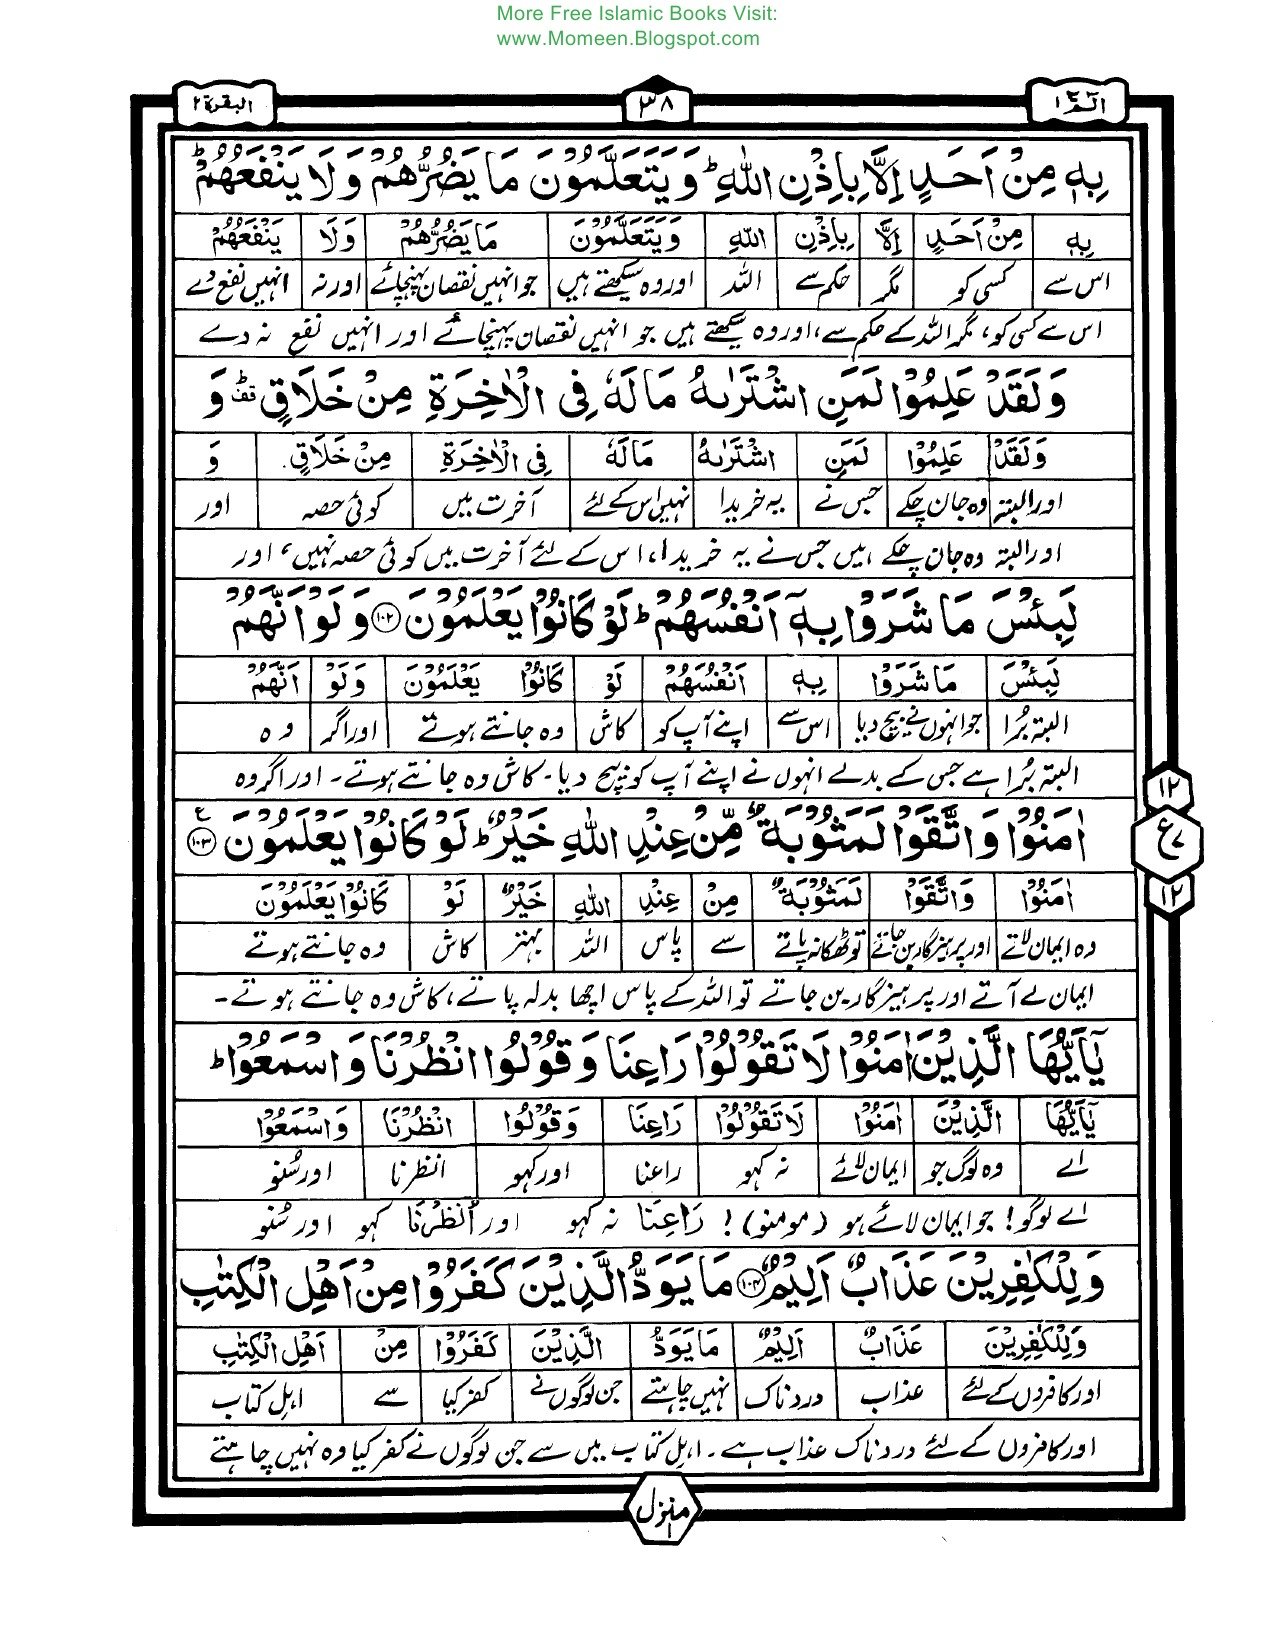 More Free Islamic Books Visit:
www.Momeen.Blogspot.com
الٓمّٓ ١ ٣٨ البقرة ٢
بِهٖ مِنْ اَحَدٍ اِلَّا بِاِذْنِ اللّٰهِ ؕ وَ یَتَعَلَّمُوْنَ مَا یَضُرُّهُمْ وَ لَا یَنْفَعُهُمْ ؕ
بِهٖ مِنْ اَحَدٍ اِلَّا بِاِذْنِ اللّٰهِ وَیَتَعَلَّمُوْنَ مَا یَضُرُّهُمْ وَلَا یَنْفَعُهُمْ
اس سے کسی کو مگر حکم سے اللہ اور وہ سیکھتے ہیں جو انہیں نقصان پہنچائے اور نہ انہیں نفع دے
اس سے کسی کو، مگر اللہ کے حکم سے، اور وہ سیکھتے ہیں جو انہیں نقصان پہنچائے اور انہیں نفع نہ دے
وَ لَقَدْ عَلِمُوْا لَمَنِ اشْتَرٰىهُ مَا لَهٗ فِی الْاٰخِرَةِ مِنْ خَلَاقٍ ۛؕ وَ
وَ لَقَدْ عَلِمُوْا لَمَنِ اشْتَرٰىهُ مَا لَهٗ فِی الْاٰخِرَةِ مِنْ خَلَاقٍ وَ
اور البتہ وہ جان چکے جس نے یہ خریدا نہیں اس کے لئے آخرت میں کوئی حصہ اور
اور البتہ وہ جان چکے ہیں جس نے یہ خریدا، اس کے لئے آخرت میں کوئی حصہ نہیں، اور
لَبِئْسَ مَا شَرَوْا بِهٖۤ اَنْفُسَهُمْ ؕ لَوْ كَانُوْا یَعْلَمُوْنَ ﴿۱۰۲﴾ وَ لَوْ اَنَّهُمْ
لَبِئْسَ مَا شَرَوْا بِهٖ اَنْفُسَهُمْ لَوْ كَانُوْا یَعْلَمُوْنَ وَ لَوْ اَنَّهُمْ
البتہ بُرا جو انہوں نے بیچ دیا اس سے اپنے آپ کو کاش وہ جانتے ہوتے اور اگر وہ
البتہ بُرا ہے جس کے بدلے انہوں نے اپنے آپ کو بیچ دیا۔ کاش وہ جانتے ہوتے۔ اور اگر وہ
١٢
اٰمَنُوْا وَ اتَّقَوْا لَمَثُوْبَةٌ مِّنْ عِنْدِ اللّٰهِ خَیْرٌ ؕ لَوْ كَانُوْا یَعْلَمُوْنَ ﴿۱۰۳﴾ ع
ع ٧
١٢
اٰمَنُوْا وَ اتَّقَوْا لَمَثُوْبَةٌ مِنْ عِنْدِ اللّٰهِ خَیْرٌ لَوْ كَانُوْا یَعْلَمُوْنَ
وہ ایمان لاتے اور پرہیزگار بن جاتے تو ٹھکانہ پاتے سے پاس اللہ بہتر کاش وہ جانتے ہوتے
ایمان لے آتے اور پرہیزگار بن جاتے تو اللہ کے پاس اچھا بدلہ پاتے، کاش وہ جانتے ہوتے۔
یٰۤاَیُّهَا الَّذِیْنَ اٰمَنُوْا لَا تَقُوْلُوْا رَاعِنَا وَ قُوْلُوا انْظُرْنَا وَ اسْمَعُوْا ؕ
یٰۤاَیُّهَا الَّذِیْنَ اٰمَنُوْا لَا تَقُوْلُوْا رَاعِنَا وَ قُوْلُوا انْظُرْنَا وَ اسْمَعُوْا
اے وہ لوگ جو ایمان لائے نہ کہو راعنا اور کہو انظرنا اور سُنو
اے لوگو! جو ایمان لائے ہو (مومنو)! رَاعِنَا نہ کہو اور اُنْظُرْنَا کہو اور سُنو
وَ لِلْكٰفِرِیْنَ عَذَابٌ اَلِیْمٌ ﴿۱۰۴﴾ مَا یَوَدُّ الَّذِیْنَ كَفَرُوْا مِنْ اَهْلِ الْكِتٰبِ
وَ لِلْكٰفِرِیْنَ عَذَابٌ اَلِیْمٌ مَا یَوَدُّ الَّذِیْنَ كَفَرُوْا مِنْ اَهْلِ الْكِتٰبِ
اور کافروں کے لئے عذاب دردناک نہیں چاہتے جن لوگوں نے کفر کیا سے اہل کتاب
اور کافروں کے لئے دردناک عذاب ہے۔ اہل کتاب میں سے جن لوگوں نے کفر کیا وہ نہیں چاہتے
منزل ١